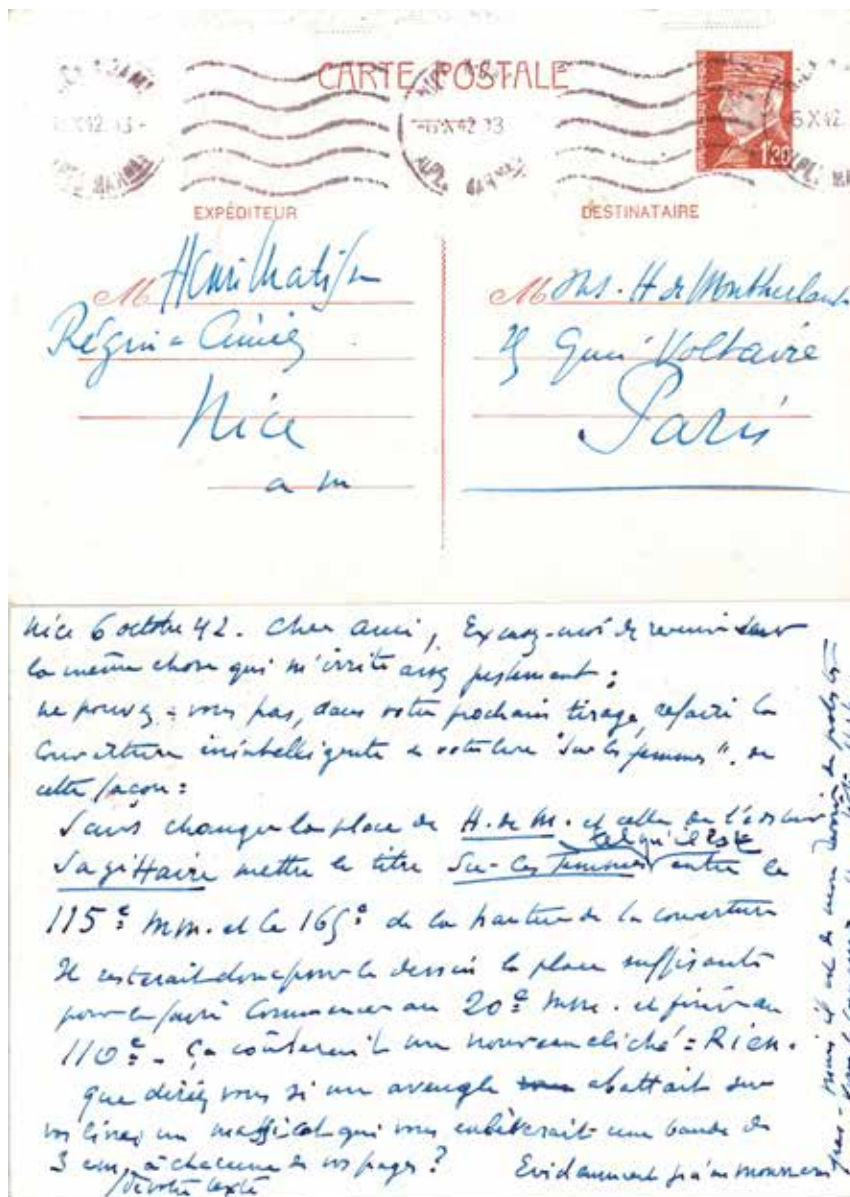 CARTE POSTALE
-6 X 42 13
1f20
EXPÉDITEUR
DESTINATAIRE
M Henri Matisse
Régina Cimiez
Nice
a m
M ons. H de Montherlant
25 Quai Voltaire
Paris
Nice 6 octobre 42. Cher ami, Excusez-moi de revenir sur
la même chose qui m'irrite assez justement :
ne pouvez-vous pas, dans votre prochain tirage, refaire la
couverture inintelligente de votre livre "Sur les femmes", de
cette façon :
Sans changer la place de H. de M. et celle de l'éditeur
tel qu'il est
Sagittaire mettre le titre Sur les femmes entre le
115e mm. et le 165e de la hauteur de la couverture
Il resterait donc pour le dessin la place suffisante
pour le faire commencer au 20e mm. et finir au
110e - Ça coûterait un nouveau cliché = Rien.
Que diriez vous si un aveugle abattait sur
vos livres un massicot qui vous enlèverait une bande de
3 cm, à chacune de vos pages ?
de votre texte
Evidemment
mais il est de mon devoir de protester